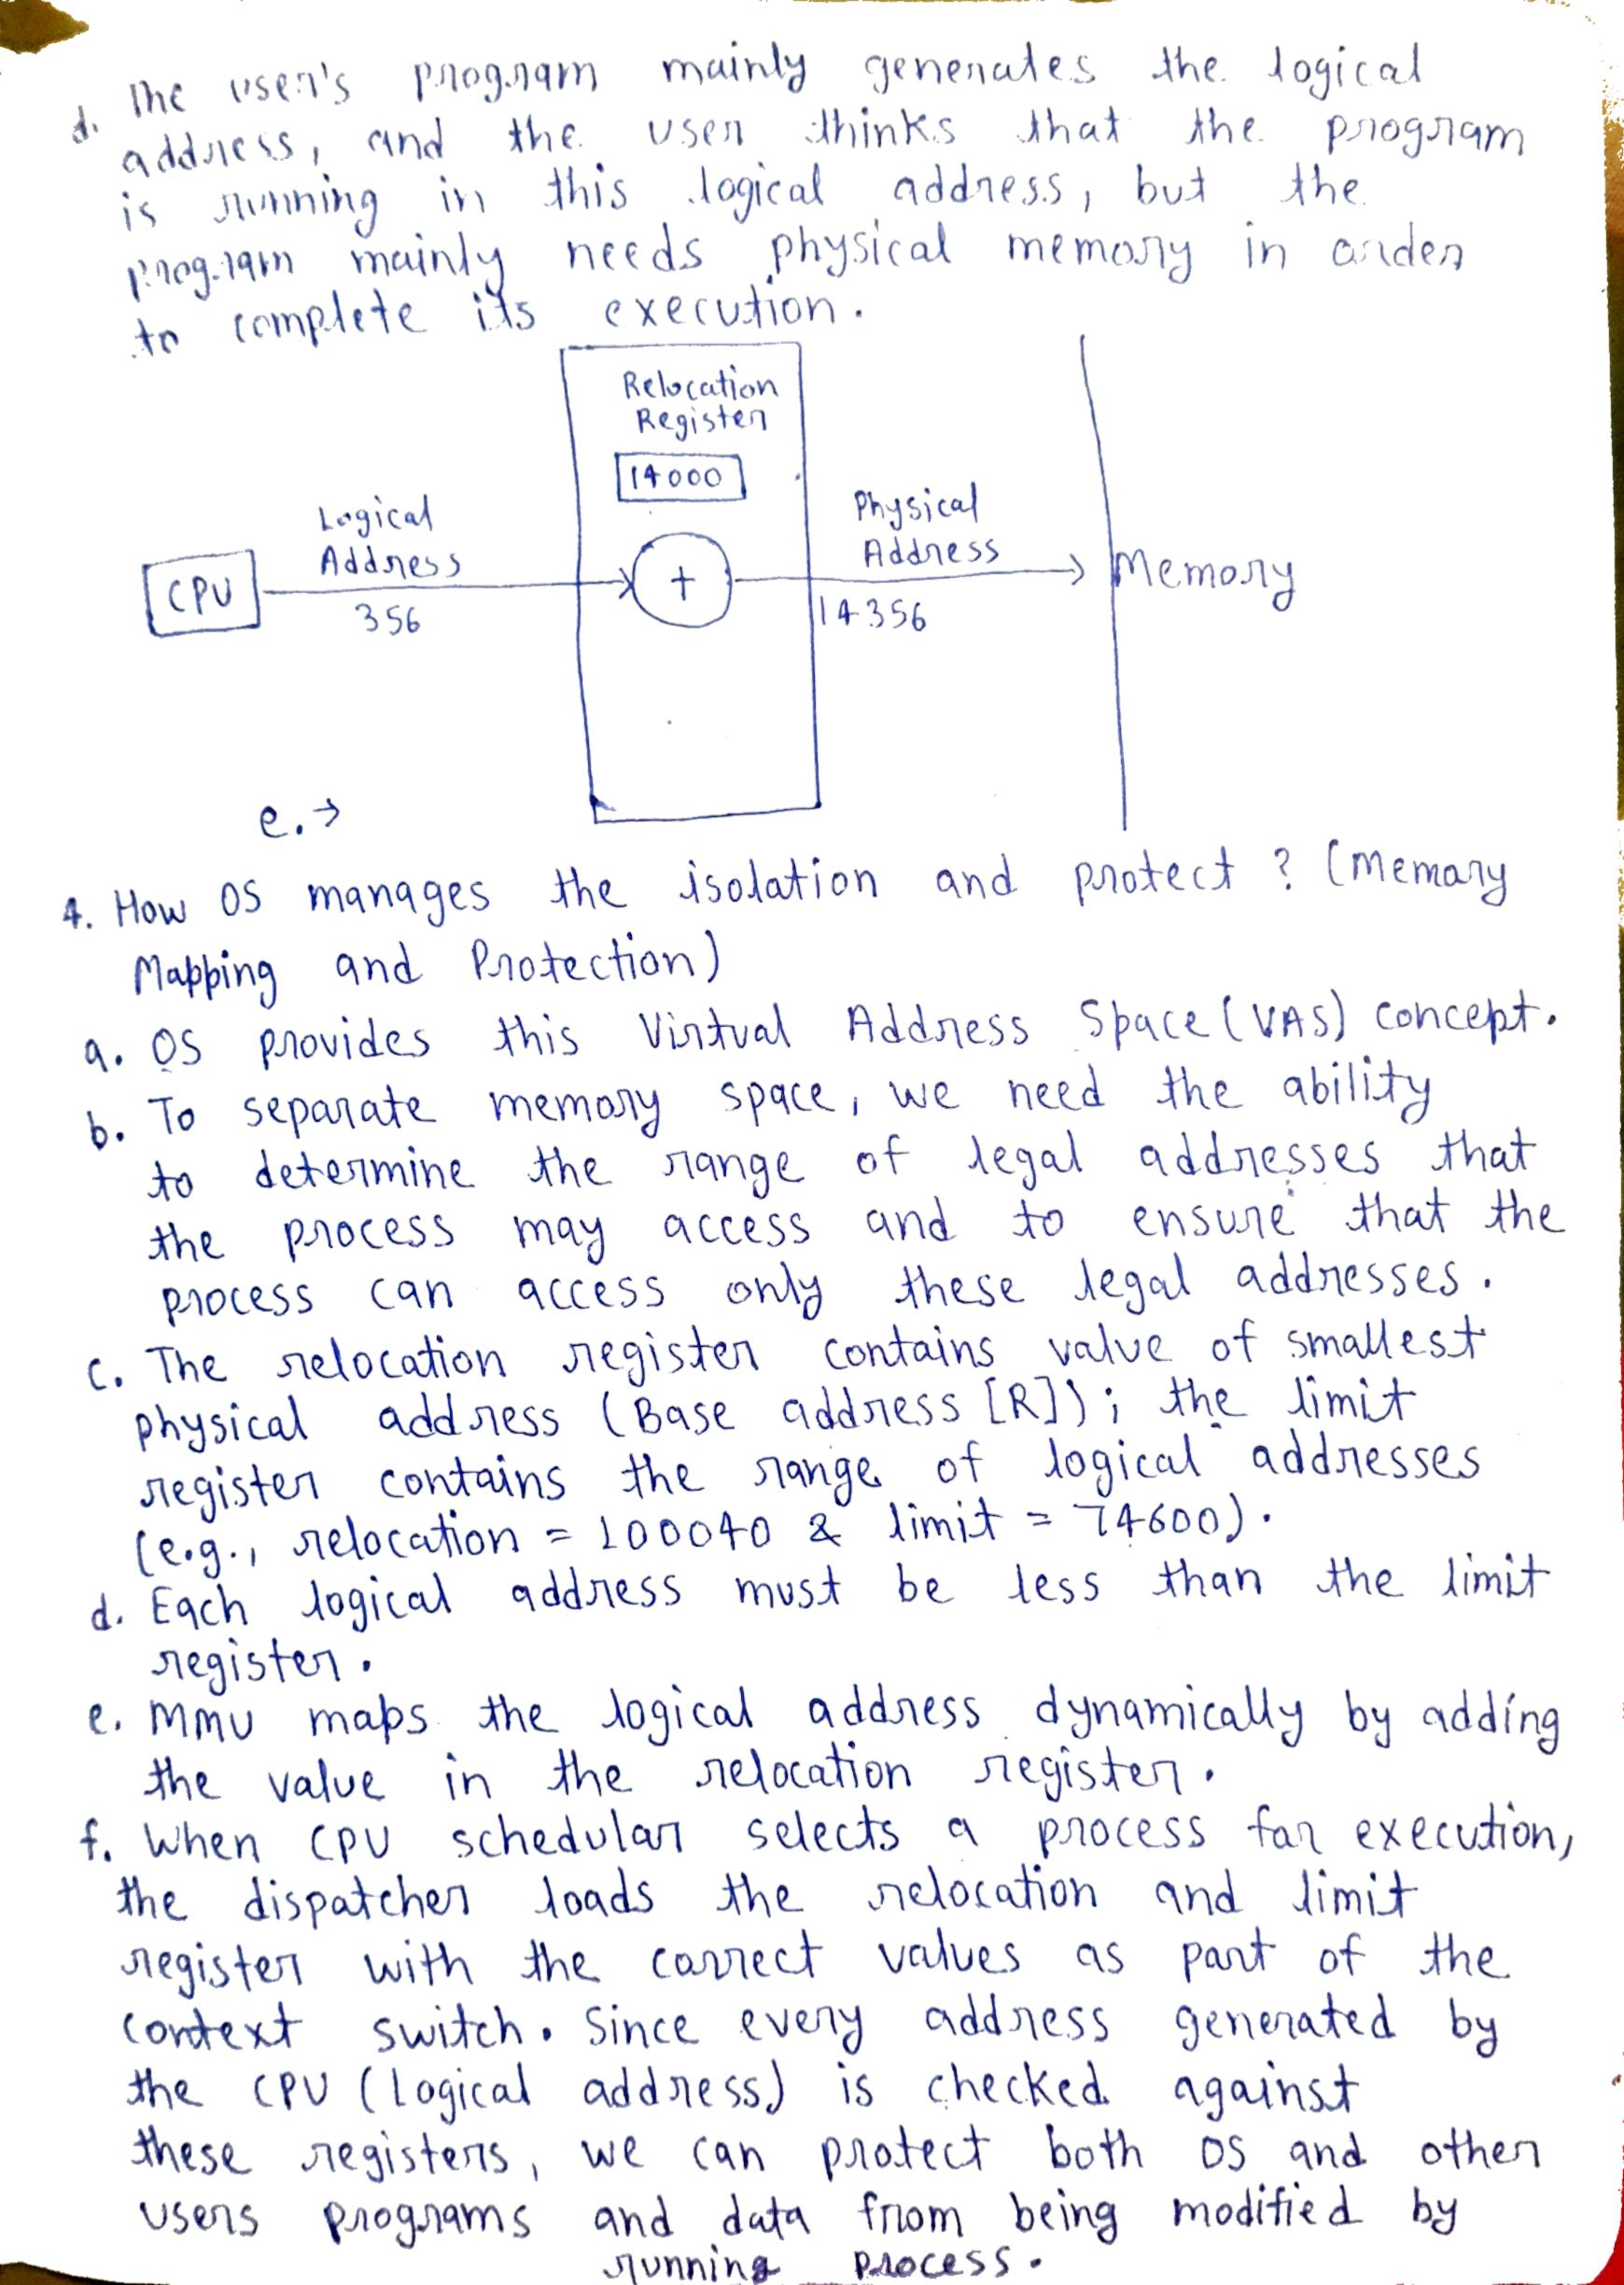 d. The user's program mainly generates the logical
address, and the user thinks that the program
is running in this logical address, but the
program mainly needs physical memory in order
to complete its execution.
Relocation
Register
14000
Logical
Address
Physical
Address
CPU
+
Memory
356
14356
e. →
4. How OS manages the isolation and protect ? (Memory
Mapping and Protection)
a. OS provides this Virtual Address Space (VAS) concept.
b. To separate memory space, we need the ability
to determine the range of legal addresses that
the process may access and to ensure that the
process can access only these legal addresses.
c. The relocation register contains value of smallest
physical address (Base address [R]); the limit
register contains the range of logical addresses
(e.g., relocation = 100040 & limit = 74600).
d. Each logical address must be less than the limit
register.
e. MMU maps the logical address dynamically by adding
the value in the relocation register.
f. When CPU schedular selects a process for execution,
the dispatcher loads the relocation and limit
register with the correct values as part of the
context switch. Since every address generated by
the CPU (Logical address) is checked against
these registers, we can protect both OS and other
users programs and data from being modified by
running process.